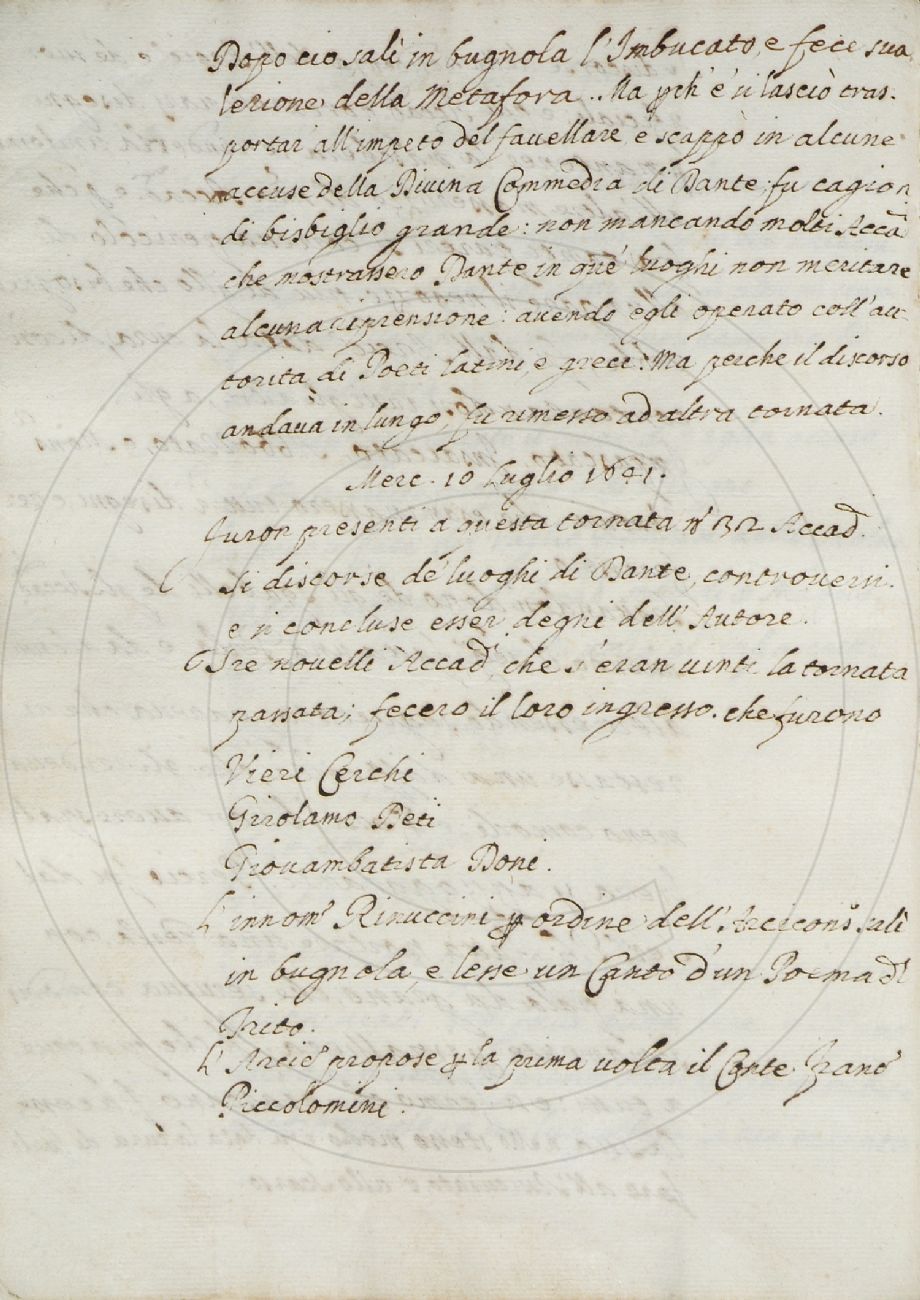 Dopo cio salì in bugnola l'Imbucato, e fece sua
lezione della Metafora. Ma ꝑch'é si lasciò tras-
portar all'impeto del favellare, e scappò in alcune
accuse della Divina Commedia di Dante, fu cagion
di bisbiglio grande: non mancando molti Accad
che mostrassero Dante in que' luoghi non meritare
alcuna riprensione: avendo egli operato coll'au-
torita di Poeti latini, e greci: Ma perche il discorso
andava in lungo, fu rimesso ad altra tornata.
Merc. 10 Luglio 1641.
Furon presenti a questa tornata nº 32 Accad.
Si discorse de' luoghi di Dante, controversi.
e si concluse esser degni dell'Autore.
Tre novelli Accad. che s'eran vinti la tornata
passata; fecero il loro ingresso. che furono
Vieri Cerchi
Girolamo Beti
Giovambatista Doni.
L'innom. Rinuccini ꝑ ordine dell'Arcicons. salì
in bugnola, e lesse un Canto d'un Poema d
Trito.
L'Arcic. propose ꝑ la prima volta il Conte Franc
Piccolomini.